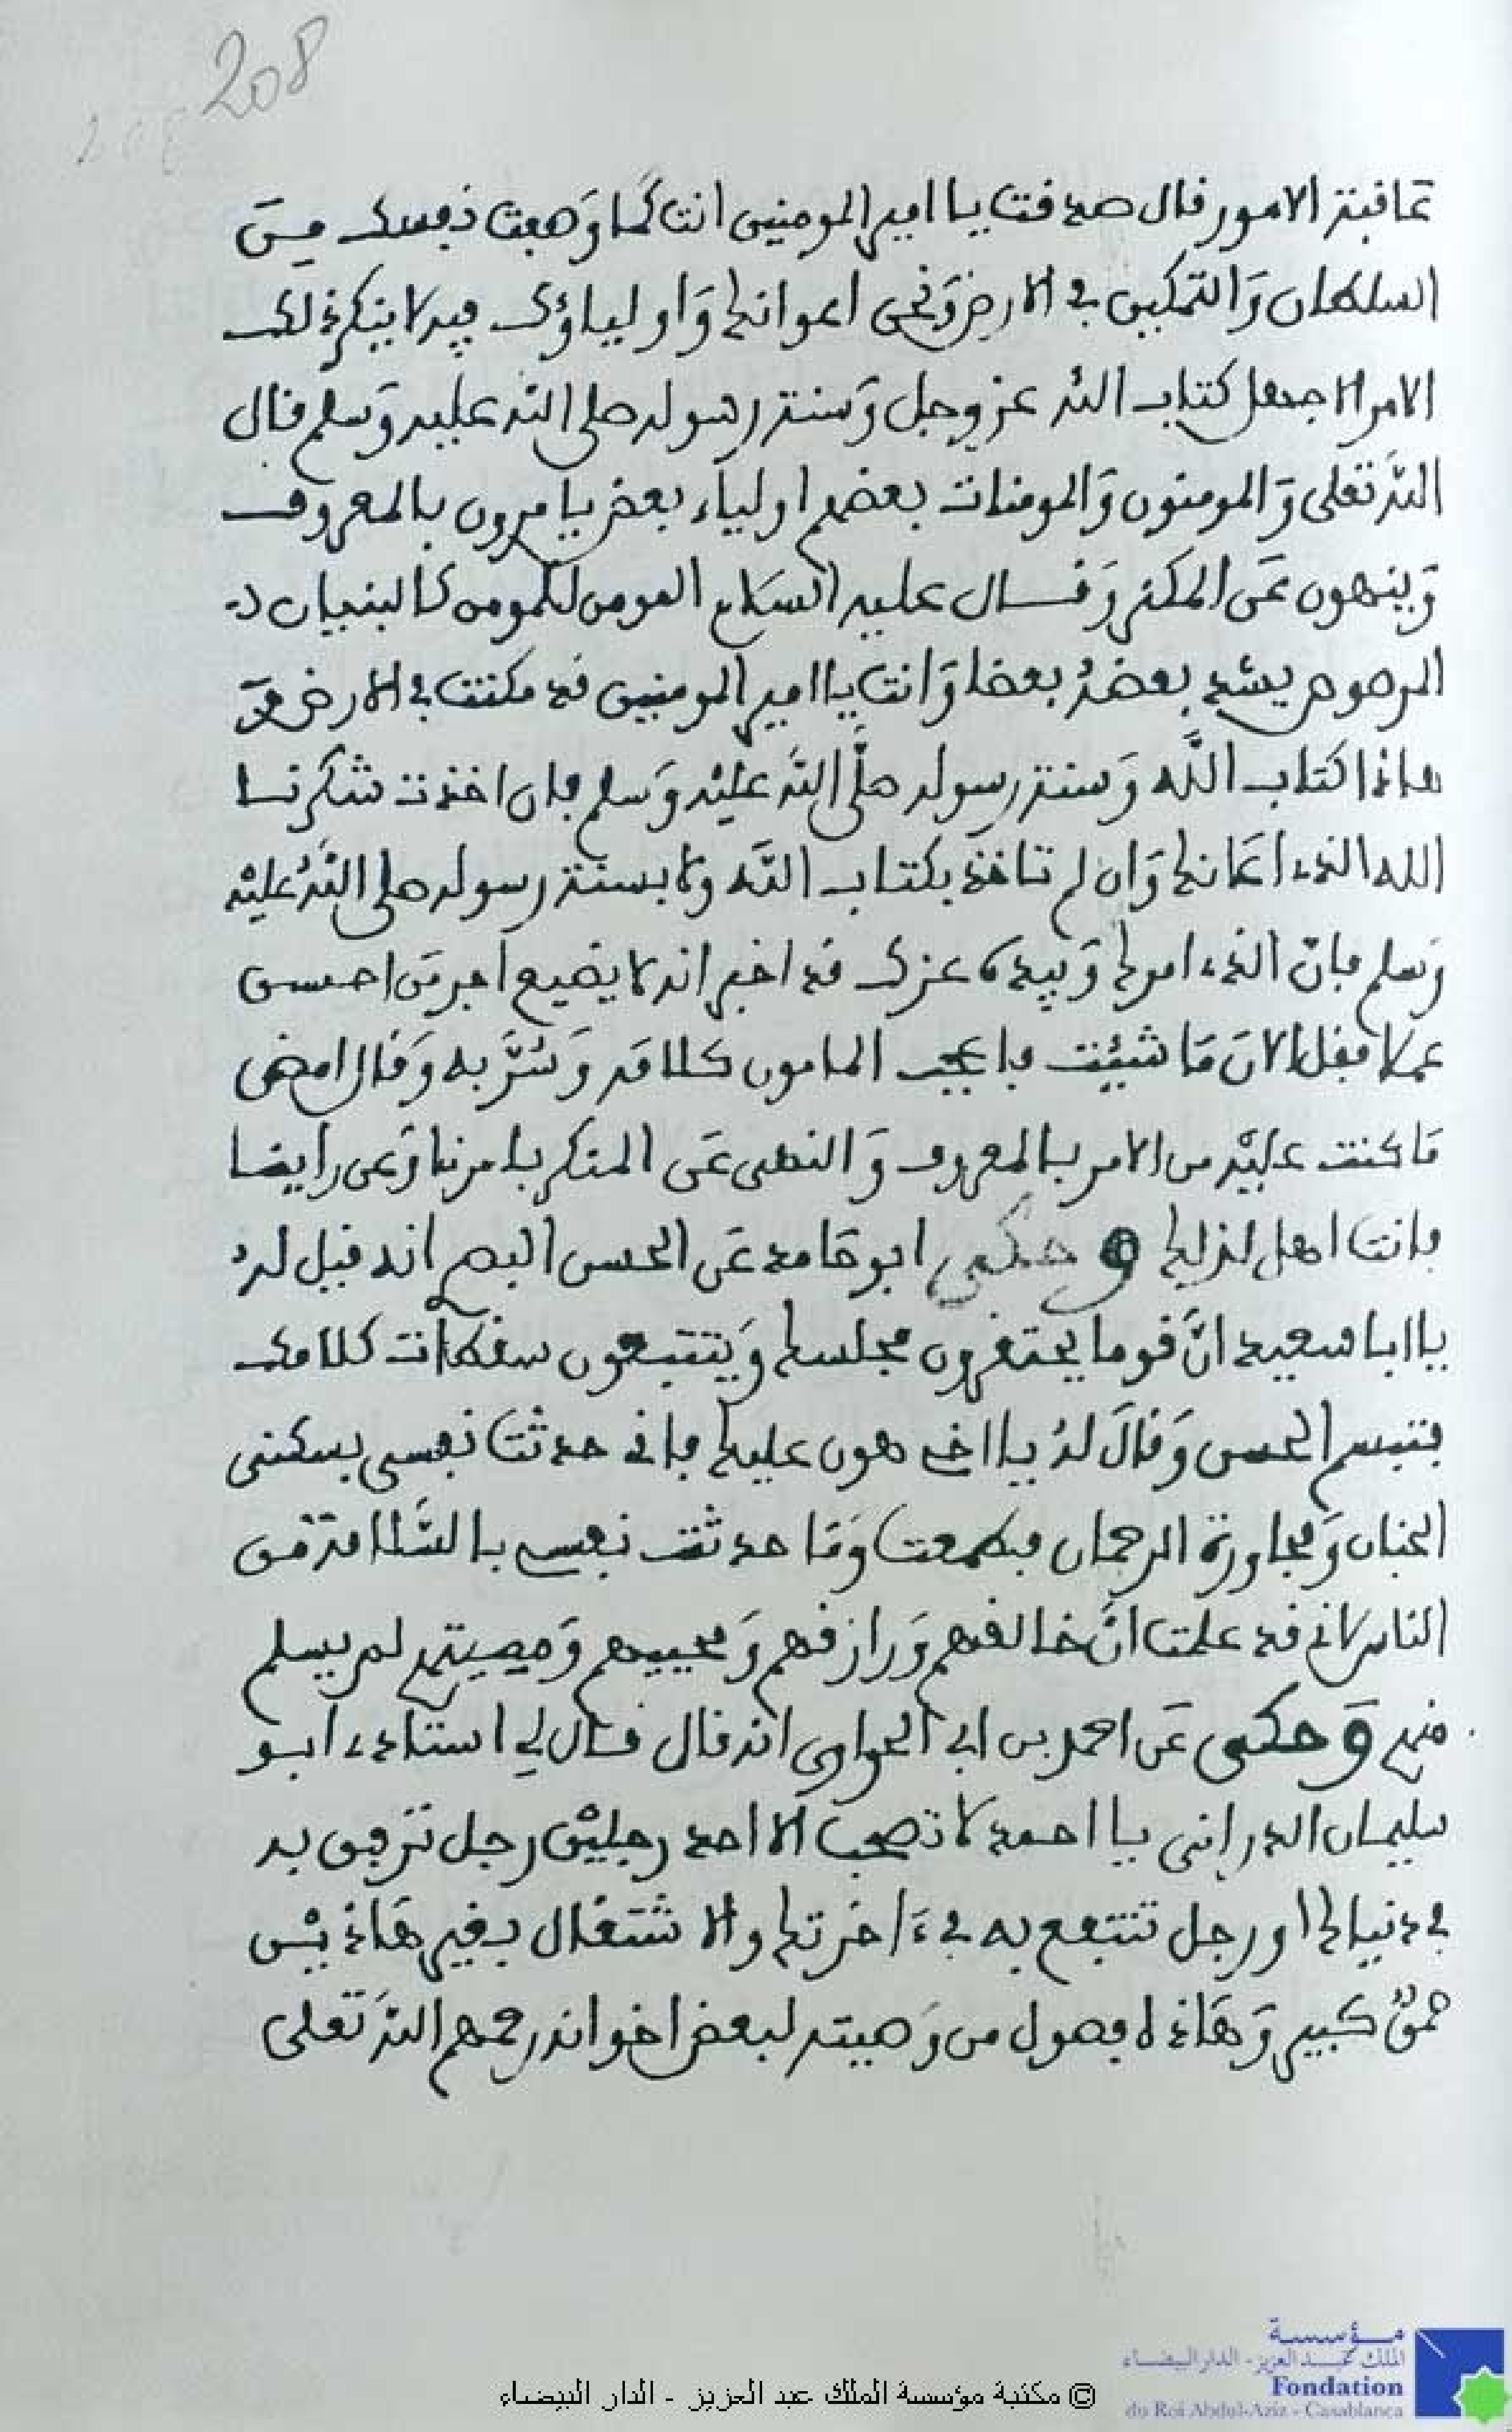 208
208
عاقبة الامور قال صدقت يا امير المومنين انت كما وَصفت نفسك مِنَ
السلطان وَالتمكين في الارض وَنحن اعوانك وَاولياؤك فيه لا ينكر ذلك
الامر الا جهل كتاب الله عز وجل وَسنة رسوله صلى الله عليه وَسلم قال
اللهُ تعلى وَالمومنون وَالمومنات بعضهم اولياء بعض يامرون بالمعروف
وَينهون عَن المنكر وَقال عليه السلام المومن للمومن كالبنيان
المرصوص يشد بعضهُ بعضا وَانت يا امير المومنين قد مكنت في الارض وَ
هاذا كتاب اللَّه وَسنة رسوله صلَّى اللهُ عليْه وَسلم فان اخذت شكرنا
الله الذي اعَانك وَان لم تاخذ بكتاب اللَّه ولا بسنة رسوله صلى اللهُ عليْه
وَسلم فانّ الذي امرك وَبيده عزك قد اخبر انه لا يضيع اجر مَن احسن
عملا فقل الانَ مَا شئِت فاعجب المامون كلامه وَسُرَّ به وَقال امض
مَا كنت عليْه من الامر بالمعروف وَالنهى عَن المنكر بامرنا وَعن راينا
فانت اهل لذلك وحكى ابو حَامد عَن الحسن البصري انه قيل له
يا ابا سعيد انَّ قوما يحتقرون مجلسك وَيتتبعون سقطات كلامك
فتبسم الحسن وَقالَ لهُ يا اخي هون عليك فاني حدثت نفسي بسكنى
الجنان وَمجاورة الرحمان فطمعت وَمَا حدثت نفسي بالسَّلامة من
الناس لاني قد علمت انَّ خالقهم وَرازقهم وَمحييهم وَمميتهم لم يسلم
منهم وَحكى عَن احمد بن ابي الحواري انه قال قال لي استاذي ابو
سليمان الدراني يا احمد لا تصحب الا احد رجليْن رجل ترتفق به
في دنياك او رجل تنتفع به في ءَاخرتك والاشتغال بغير هَاذيْن
حمقٌ كبير وَهَاذه فصول من وَصيته لبعض اخوانه رحمهم اللهُ تعلى
© مكتبة مؤسسة الملك عبد العزيز - الدار البيضاء
مؤسسة
الملك عبد العزيز - الدار البيضاء
Fondation
du Roi Abdul-Aziz - Casablanca